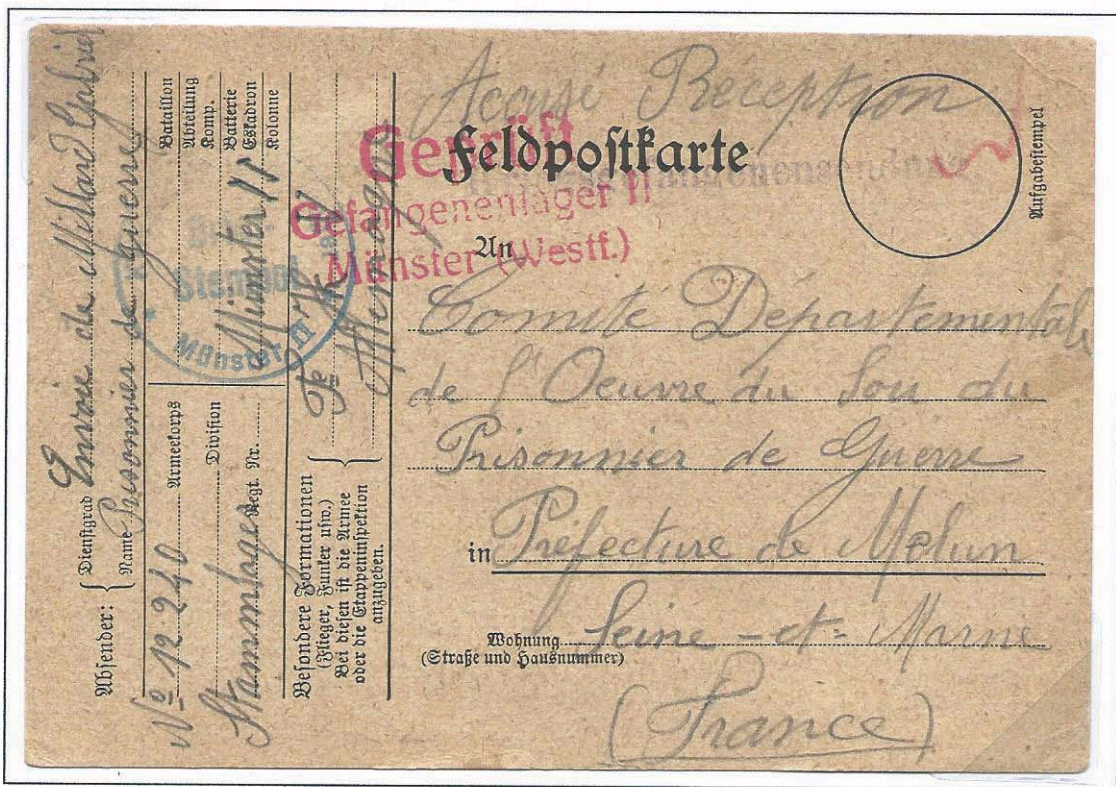 Acquisé Réception
Feldpostkarte
Geprüft
Gefangenenlager II
Münster (Westf.)
Aufgabestempel
An
Comité Départementale
de l'Oeuvre du Sou du
Prisonnier de Guerre
in Préfecture de Melun
Wohnung Seine-et-Marne
(Straße und Hausnummer)
(France)
Absender: Dienstgrad Envoie de Millard Gabriel
Name Prisonnier de guerre
No 12 240 Armeekorps
Division
Stammlager Regt. Nr.
Bataillon
Abteilung
Komp.
Batterie
Eskadron
Kolonne
Münster II
Stempel
Münster II
Besondere Formationen
(Flieger, Funker usw.)
Bei diesen ist die Armee
oder die Etappeninspektion
anzugeben.